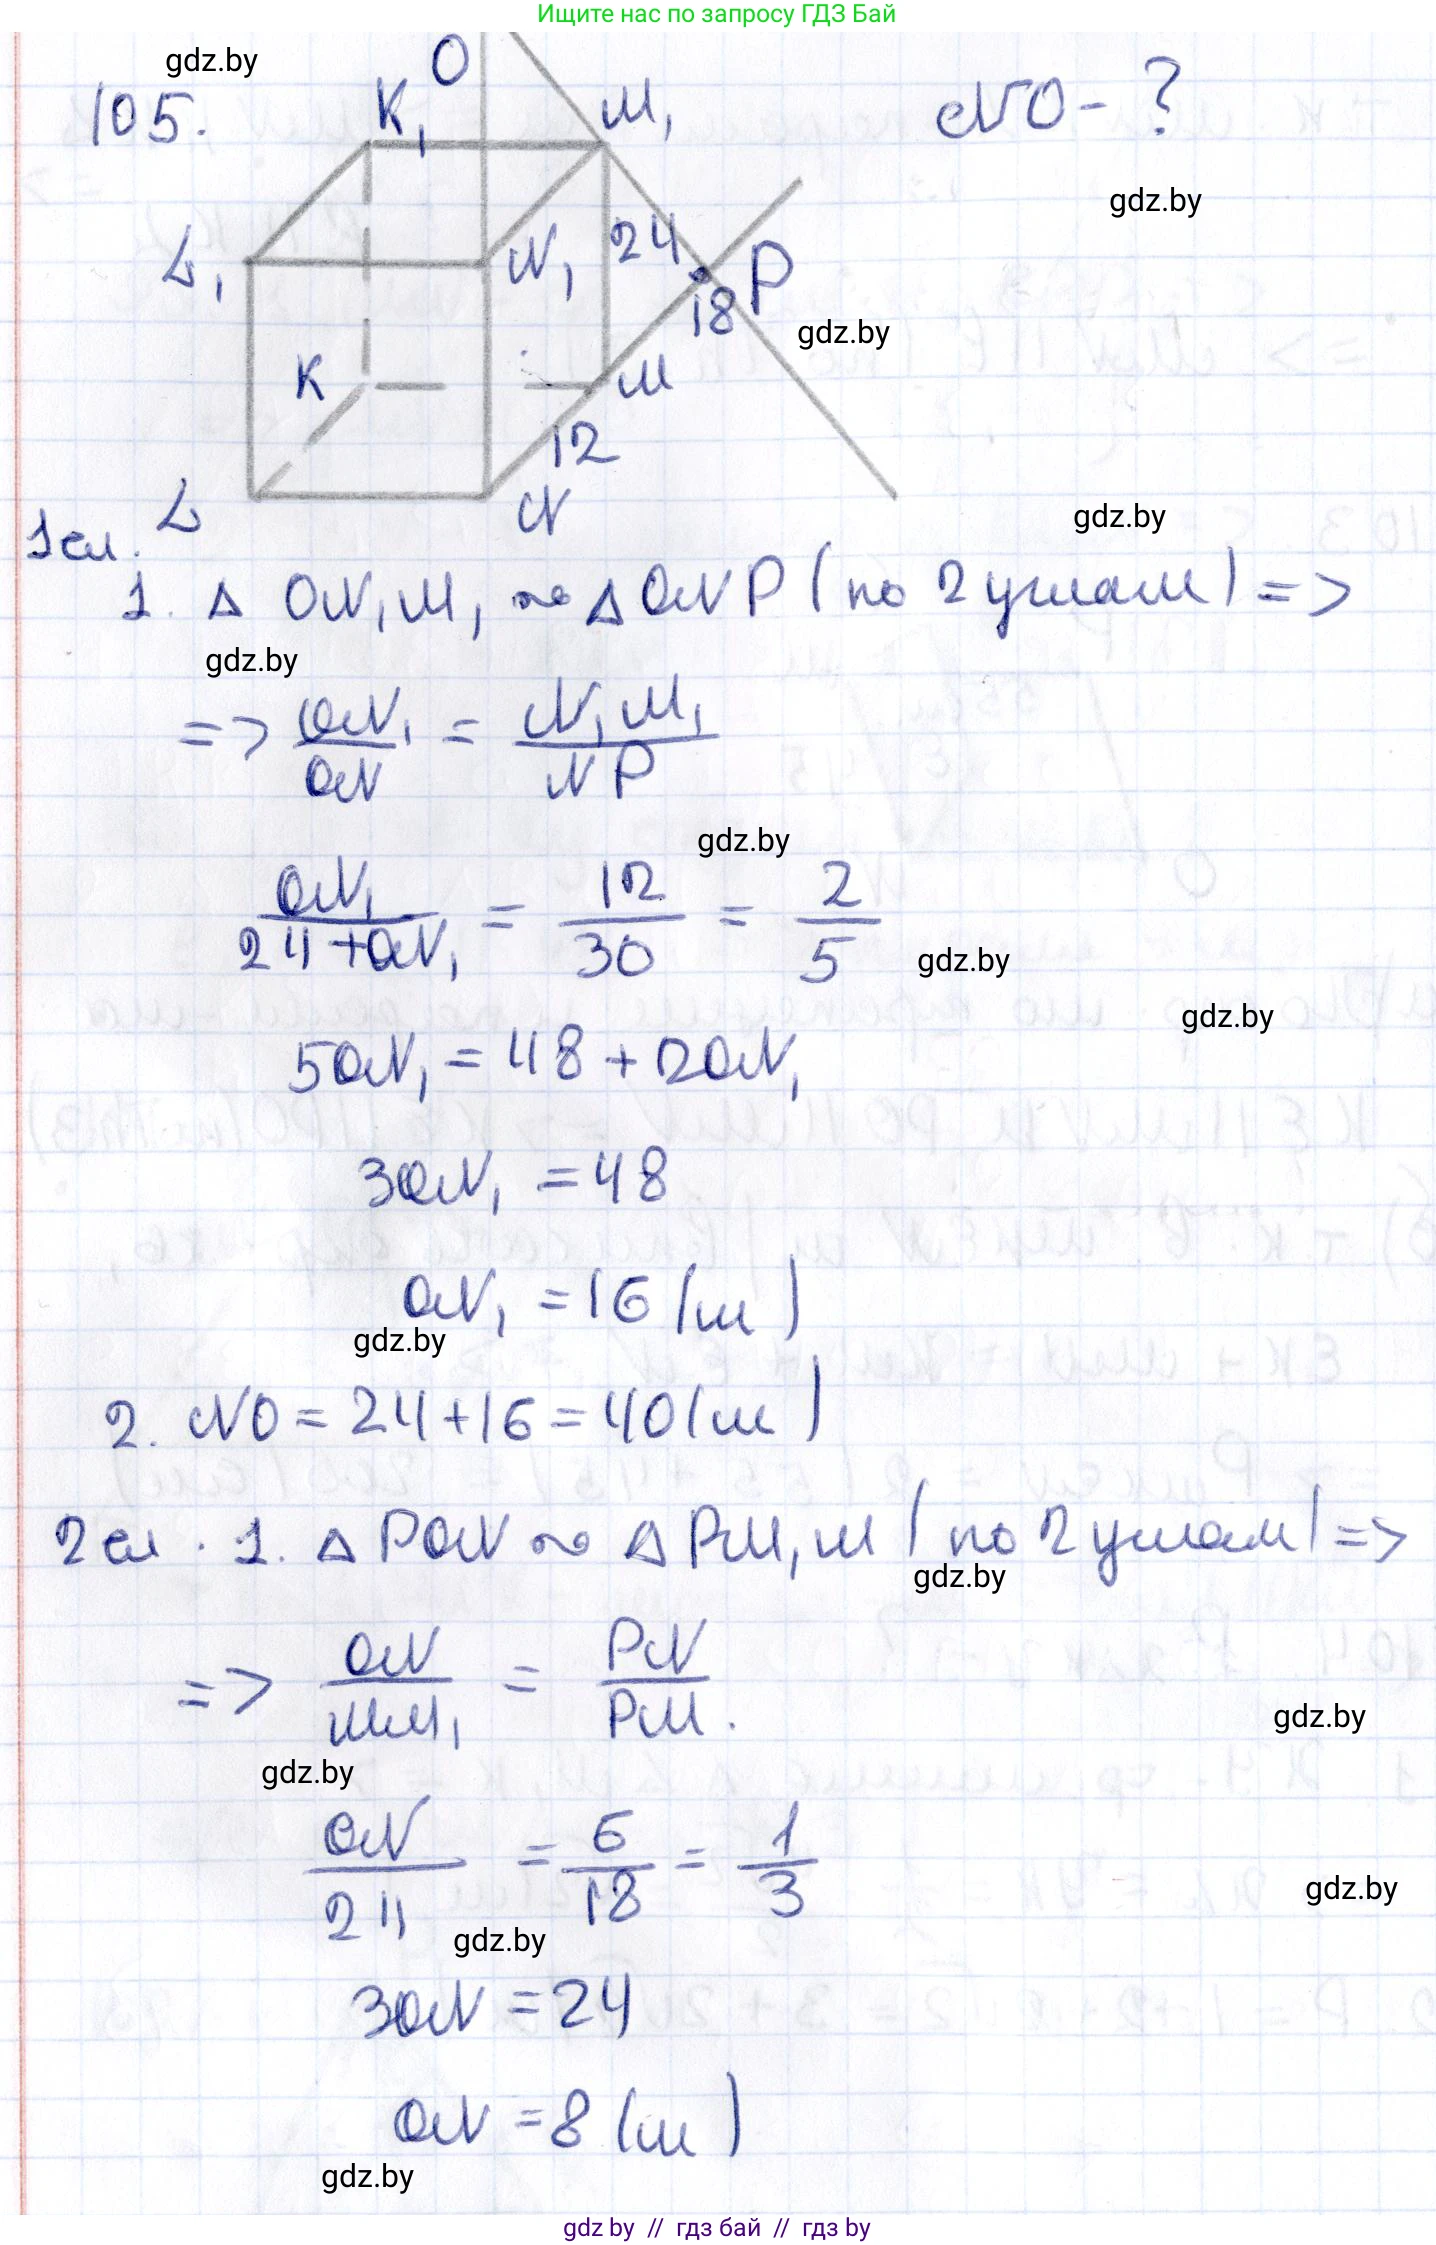 Ищите нас по запросу ГДЗ Бай
gdz.by
105.
K₁ O M₁
NO - ?
gdz.by
L₁ N₁ 24 P
18
gdz.by
K M
12
L N
gdz.by
1 сл.
1. Δ ON₁M₁ ~ Δ ONP (по 2 углам) =>
gdz.by
=> ON₁/ON = N₁M₁/NP
gdz.by
ON₁/(24+ON₁) = 12/30 = 2/5
gdz.by
gdz.by
5ON₁ = 48 + 2ON₁
3ON₁ = 48
ON₁ = 16 (м)
gdz.by
2. NO = 24+16 = 40 (м)
2 сл. 1. Δ PON ~ Δ PM₁M (по 2 углам) =>
gdz.by
=> ON/MM₁ = PN/PM.
gdz.by
gdz.by
ON/24 = 6/18 = 1/3
gdz.by
gdz.by
3ON = 24
ON = 8 (м)
gdz.by
gdz by // гдз бай // гдз by